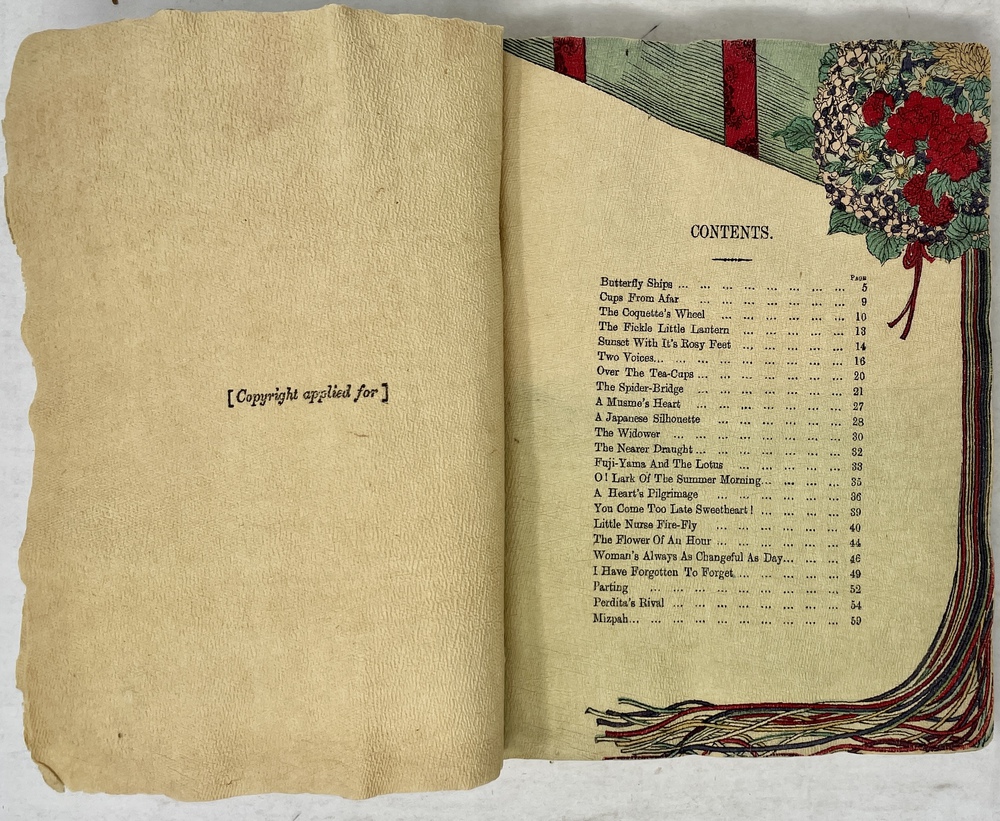 [Copyright applied for]
CONTENTS.
PAGE
Butterfly Ships ... ... ... ... ... ... ... ... 5
Cups From Afar ... ... ... ... ... ... ... 9
The Coquette's Wheel ... ... ... ... ... ... 10
The Fickle Little Lantern ... ... ... ... ... 13
Sunset With It's Rosy Feet ... ... ... ... ... 14
Two Voices... ... ... ... ... ... ... ... ... 16
Over The Tea-Cups ... ... ... ... ... ... ... 20
The Spider-Bridge ... ... ... ... ... ... ... 21
A Musme's Heart ... ... ... ... ... ... ... 27
A Japanese Silhouette ... ... ... ... ... ... 28
The Widower ... ... ... ... ... ... ... ... 30
The Nearer Draught ... ... ... ... ... ... ... 32
Fuji-Yama And The Lotus ... ... ... ... ... 33
O! Lark Of The Summer Morning... ... ... ... 35
A Heart's Pilgrimage ... ... ... ... ... ... 36
You Come Too Late Sweetheart! ... ... ... ... 39
Little Nurse Fire-Fly ... ... ... ... ... ... 40
The Flower Of An Hour ... ... ... ... ... ... 44
Woman's Always As Changeful As Day... ... ... 46
I Have Forgotten To Forget ... ... ... ... ... 49
Parting ... ... ... ... ... ... ... ... ... 52
Perdita's Rival ... ... ... ... ... ... ... ... 54
Mizpah... ... ... ... ... ... ... ... ... ... 59